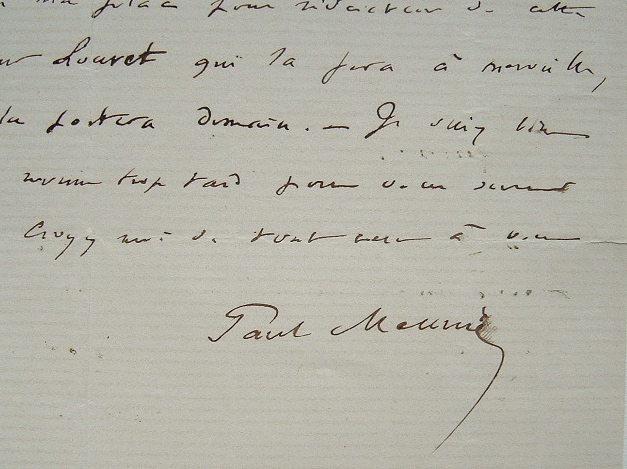 ma place pour rédacteur de cette
Louvet qui la fera à merveille,
la portera demain. — Je suis bien
trop tard pour vous
Croyez moi de tout cœur à vous
Paul Meurice